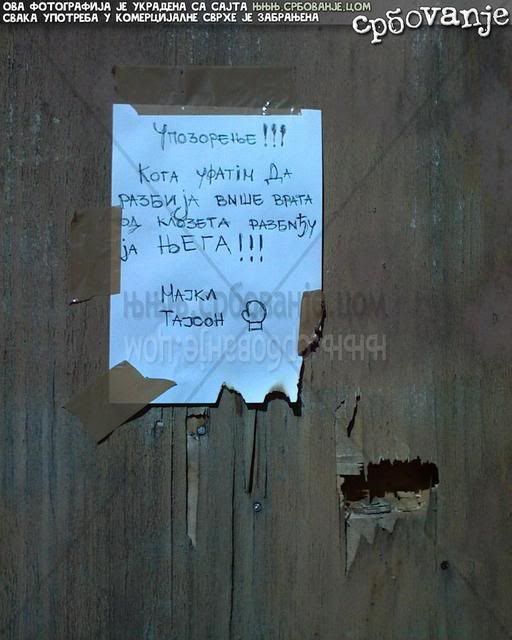 ОВА ФОТОГРАФИЈА ЈЕ УКРАДЕНА СА САЈТА ЊЊЊ.СРБОВАЊЕ.ЦОМ
СВАКА УПОТРЕБА У КОМЕРЦИЈАЛНЕ СВРХЕ ЈЕ ЗАБРАЊЕНА
србовање
Упозорење!!!
Кога уфатім Да
разбија више врата
од клозета разбићу
ја ЊЕГА!!!
Мајкл
Тајсон
ЊЊЊ.СРБОВАЊЕ.ЦОМ